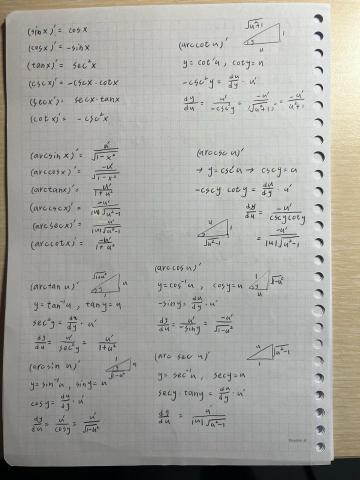 (sin x)' = cosx
(cosx)' = -sinx
(tanx)' = sec²x
(cscx)' = -cscx · cotx
(secx)' = secx · tanx
(cotx)' = -csc²x
(arccot u)'
√u²+1
1
u
y = cot⁻¹u , coty = u
-csc²y = du/dy · u'
dy/du = u'/-csc²y = -u'/(√u²+1)² = -u'/u²+1
(arcsinx)' = u'/√1-x²
(arccosx)' = -u'/√1-x²
(arctanx)' = u'/1+u²
(arccscx)' = -u'/|u|√u²-1
(arcsecx)' = u'/|u|√u²-1
(arccotx)' = -u'/1+u²
(arccsc u)'
→ y = csc⁻¹u → cscy = u
-cscy coty = du/dy · u'
dy/du = -u'/cscycoty
= -u'/|u|√u²-1
u
1
√u²-1
(arctan u)'
√1+u²
u
1
y = tan⁻¹u , tany = u
sec²y = du/dy · u'
dy/du = u'/sec²y = u'/1+u²
(arccos u)'
1
√1-u²
u
y = cos⁻¹u , cosy = u
-siny = du/dy · u'
dy/du = u'/-siny = -u'/√1-u²
(arcsin u)'
1
u
√1-u²
y = sin⁻¹u , siny = u
cosy = du/dy · u'
dy/du = u'/cosy = u'/√1-u²
(arc sec u)'
u
√u²-1
1
y = sec⁻¹u , secy = u
secy · tany = du/dy · u'
dy/du = u'/|u|√u²-1